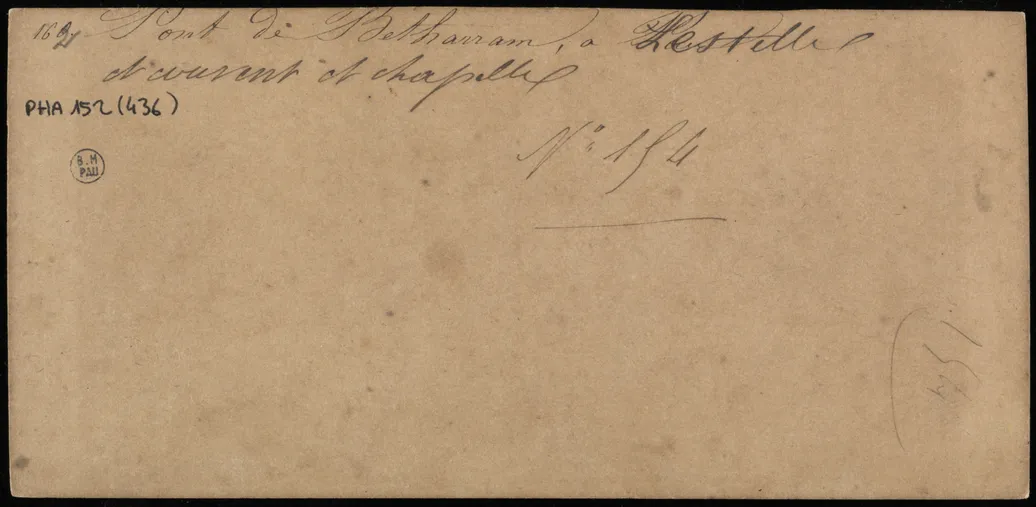 Pont de Betharram, a Lestelle
et couvent et chapelle
PHA 152 (436)
B.M
PAU
N° 154
154